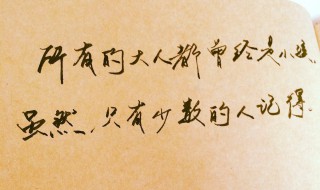 所有的大人都曾经是小孩,
虽然,只有少数的人记得.